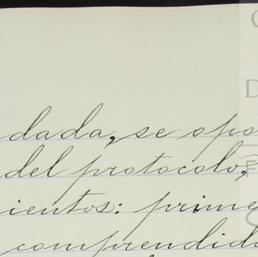 dada, se opo
del protocolo,
ientos: prime
comprendid